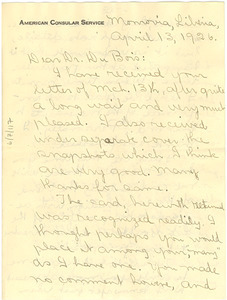 AMERICAN CONSULAR SERVICE
Monrovia, Liberia,
April 13, 1926.
Dear Dr. Du Bois:
I have received your
letter of Mch. 13th, after quite
a long wait and very much
pleased. I also received
under separate cover the
snapshots which I think
are very good. Many
thanks for same.
The card, herewith returned
was recognized readily. I
thought perhaps you would
place it among your "many"
as I have one. You made
no comment however, and